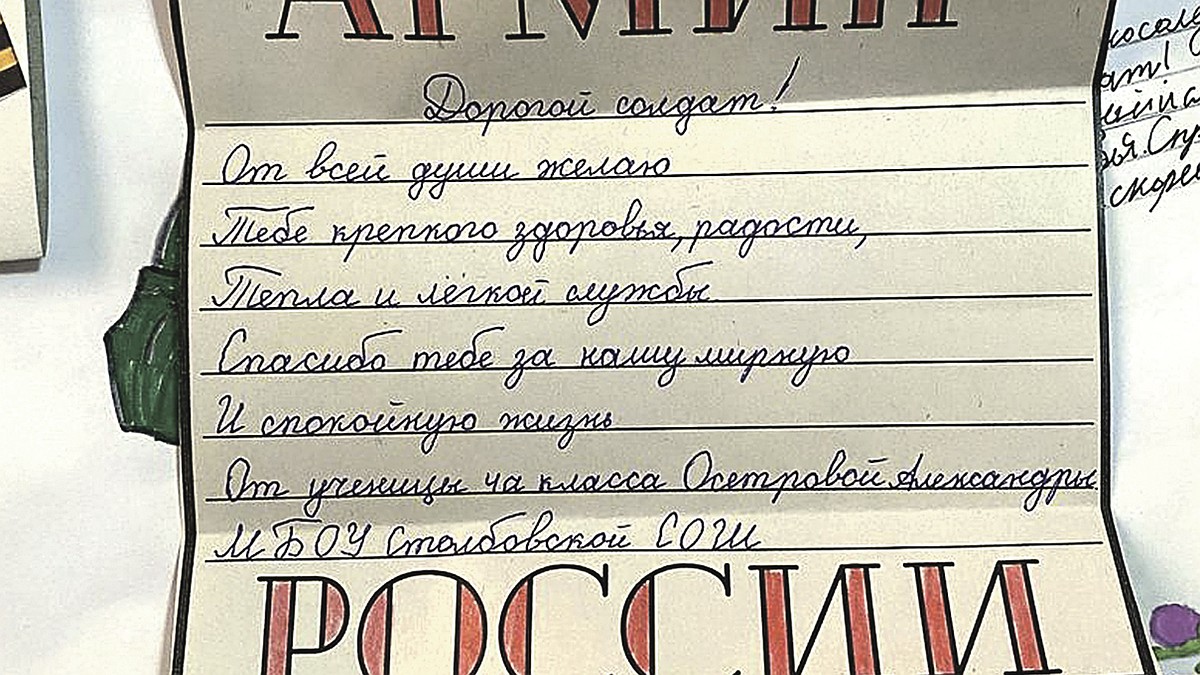 АРМИИ
Дорогой солдат!
От всей души желаю
Тебе крепкого здоровья, радости,
Тепла и лёгкой службы
Спасибо тебе за нашу мирную
И спокойную жизнь
От ученицы 4а класса Осетровой Александры.
МБОУ Столбовской СОШ
РОССИИ